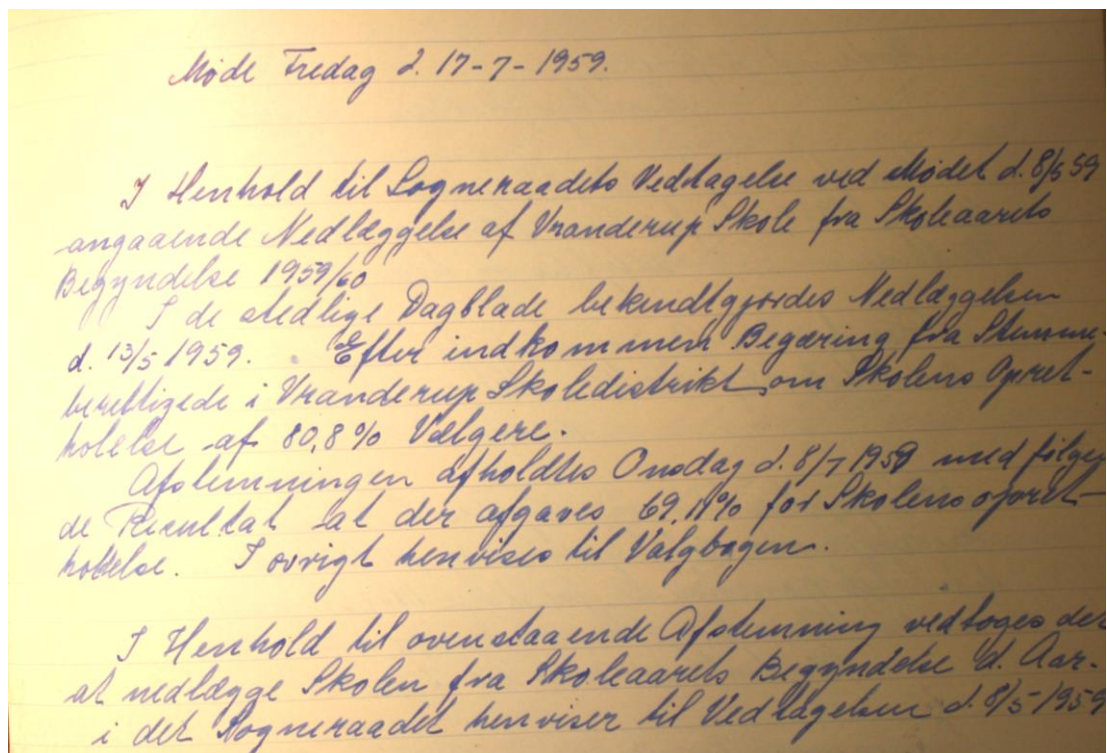 Møde Fredag d. 17-7-1959.
I Henhold til Sogneraadets Vedtagelse ved Mødet d. 8/5 59
angaaende Nedlæggelse af Vranderup Skole fra Skoleaarets
Begyndelse 1959/60
I de stedlige Dagblade bekendtgjordes Nedlæggelsen
d. 13/5 1959. Efter indkommen Begæring fra Stemme-
berettigede i Vranderup Skoledistrikt om Skolens Opret-
holdelse af 80,8% Vælgere.
Afstemningen afholdtes Onsdag d. 8/7 1959 med følgen
de Resultat at der afgaves 69,11% for Skolens opret-
holdelse. I øvrigt henvises til Valgbogen.
I Henhold til ovenstaaende Afstemning vedtoges det
at nedlægge Skolen fra Skoleaarets Begyndelse d. Aar.
i det Sogneraadet henviser til Vedtagelsen d. 8/5-1959